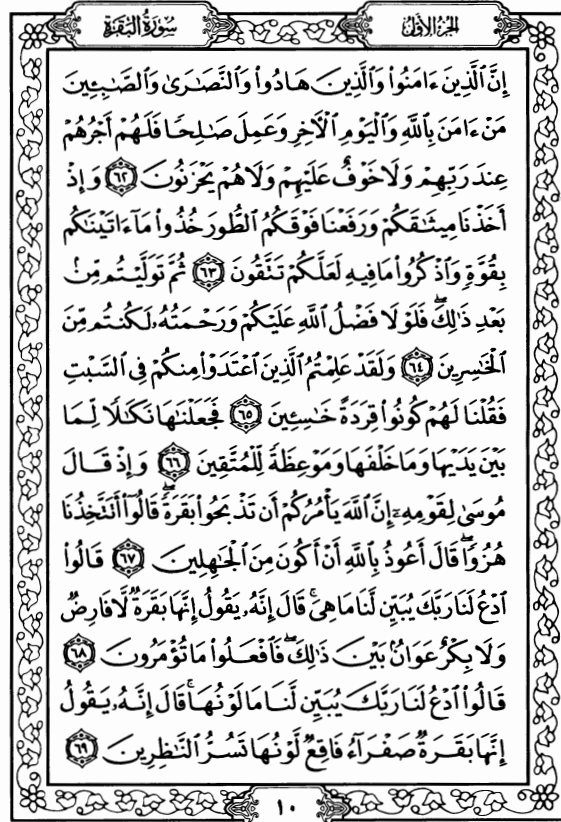 سُورَةُ البَقَرَةِ
الجُزءُ الأَوَّلُ
إِنَّ ٱلَّذِينَ ءَامَنُوا۟ وَٱلَّذِينَ هَادُوا۟ وَٱلنَّصَٰرَىٰ وَٱلصَّٰبِـِٔينَ
مَنْ ءَامَنَ بِٱللَّهِ وَٱلْيَوْمِ ٱلْـَٔاخِرِ وَعَمِلَ صَٰلِحًا فَلَهُمْ أَجْرُهُمْ
عِندَ رَبِّهِمْ وَلَا خَوْفٌ عَلَيْهِمْ وَلَا هُمْ يَحْزَنُونَ ٦٢ وَإِذْ
أَخَذْنَا مِيثَٰقَكُمْ وَرَفَعْنَا فَوْقَكُمُ ٱلطُّورَ خُذُوا۟ مَآ ءَاتَيْنَٰكُم
بِقُوَّةٍ وَٱذْكُرُوا۟ مَا فِيهِ لَعَلَّكُمْ تَتَّقُونَ ٦٣ ثُمَّ تَوَلَّيْتُم مِّنۢ
بَعْدِ ذَٰلِكَ ۖ فَلَوْلَا فَضْلُ ٱللَّهِ عَلَيْكُمْ وَرَحْمَتُهُۥ لَكُنتُم مِّنَ
ٱلْخَٰسِرِينَ ٦٤ وَلَقَدْ عَلِمْتُمُ ٱلَّذِينَ ٱعْتَدَوْا۟ مِنكُمْ فِى ٱلسَّبْتِ
فَقُلْنَا لَهُمْ كُونُوا۟ قِرَدَةً خَٰسِـِٔينَ ٦٥ فَجَعَلْنَٰهَا نَكَٰلًا لِّمَا
بَيْنَ يَدَيْهَا وَمَا خَلْفَهَا وَمَوْعِظَةً لِّلْمُتَّقِينَ ٦٦ وَإِذْ قَالَ
مُوسَىٰ لِقَوْمِهِۦٓ إِنَّ ٱللَّهَ يَأْمُرُكُمْ أَن تَذْبَحُوا۟ بَقَرَةً ۖ قَالُوٓا۟ أَتَتَّخِذُنَا
هُزُوًا ۖ قَالَ أَعُوذُ بِٱللَّهِ أَنْ أَكُونَ مِنَ ٱلْجَٰهِلِينَ ٦٧ قَالُوا۟
ٱدْعُ لَنَا رَبَّكَ يُبَيِّن لَّنَا مَا هِىَ ۚ قَالَ إِنَّهُۥ يَقُولُ إِنَّهَا بَقَرَةٌ لَّا فَارِضٌ
وَلَا بِكْرٌ عَوَانٌۢ بَيْنَ ذَٰلِكَ ۖ فَٱفْعَلُوا۟ مَا تُؤْمَرُونَ ٦٨
قَالُوا۟ ٱدْعُ لَنَا رَبَّكَ يُبَيِّن لَّنَا مَا لَوْنُهَا ۚ قَالَ إِنَّهُۥ يَقُولُ
إِنَّهَا بَقَرَةٌ صَفْرَآءُ فَاقِعٌ لَّوْنُهَا تَسُرُّ ٱلنَّٰظِرِينَ ٦٩
١٠